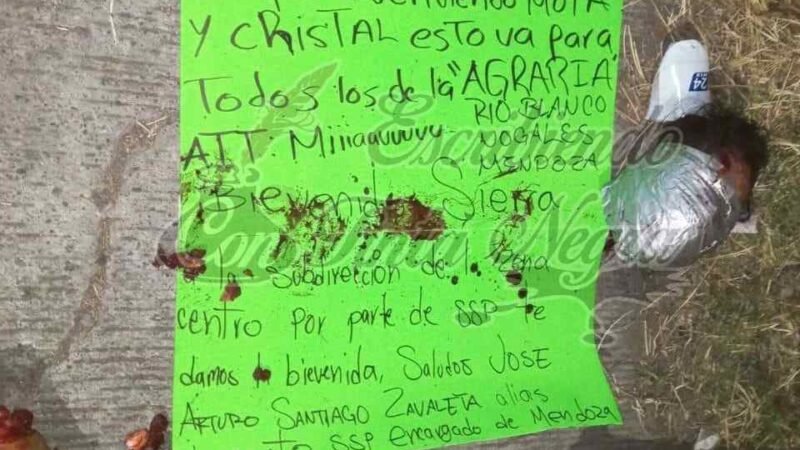 vendiendo MOTA
Y CRISTAL esto va para
Todos los de la "AGRARIA"
RIO BLANCO
NOGALES
MENDOZA
ATT. Miiaauuuuu
Bienvenido Sierra
a la subdirección de la zona
centro por parte de SSP te
damos la bievenida, Saludos JOSE
ARTURO SANTIAGO ZAVALETA alias
SSP encargado de Mendoza
Escribiendo
Con Tinta Negra
24